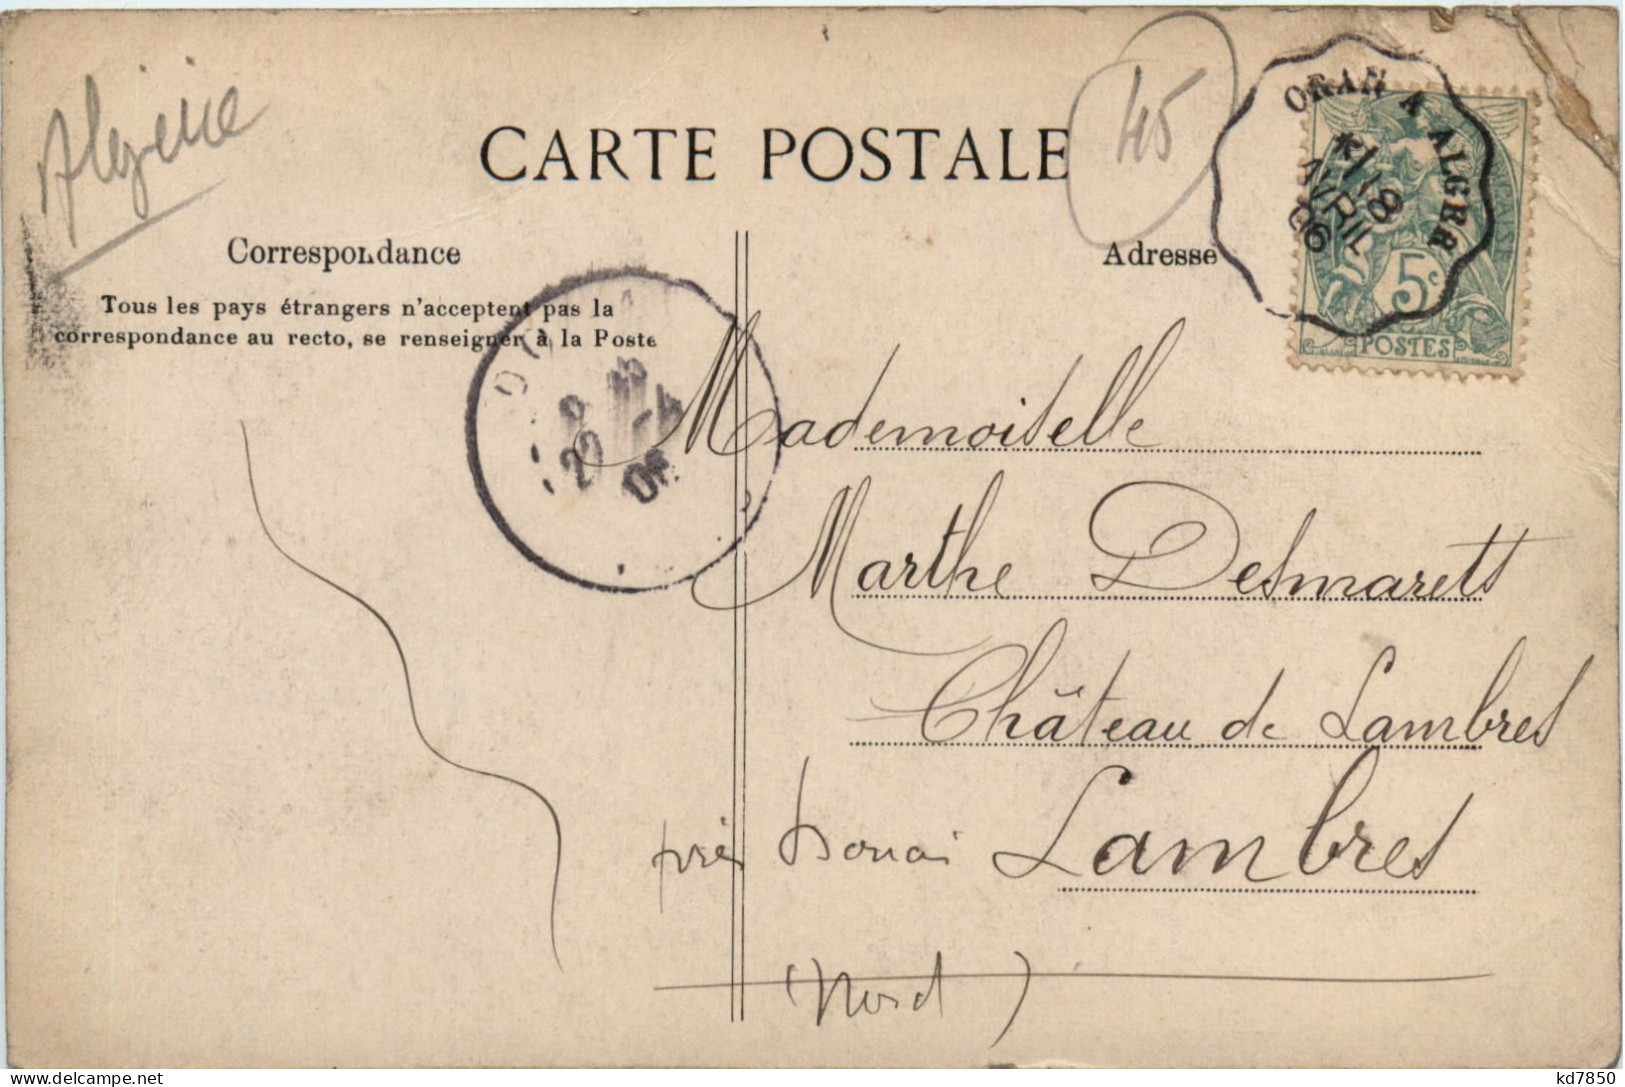 Algérie
45
CARTE POSTALE
ORAN A ALGER
18
AVRIL
06
5c
POSTES
Correspondance
Adresse
Tous les pays étrangers n'acceptent pas la
correspondance au recto, se renseigner à la Poste
Mademoiselle
Marthe Desmarets
Château de Lambres
près Douai Lambres
(Nord)
kd7850